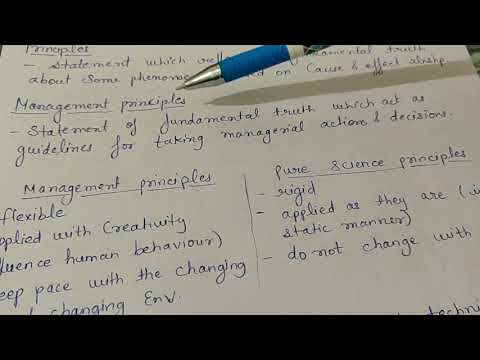 Principles
- Statement which fundamental truth
about some phenomen on Cause & effect
Management principles
- Statement of fundamental truth which act as
guidelines for taking managerial action & decisions.
Management principles
flexible
applied with Creativity
influence human behaviour)
keep pace with the changing
changing Env.
pure science principles
- rigid
- applied as they are (.i
static manner)
- do not change with
techni